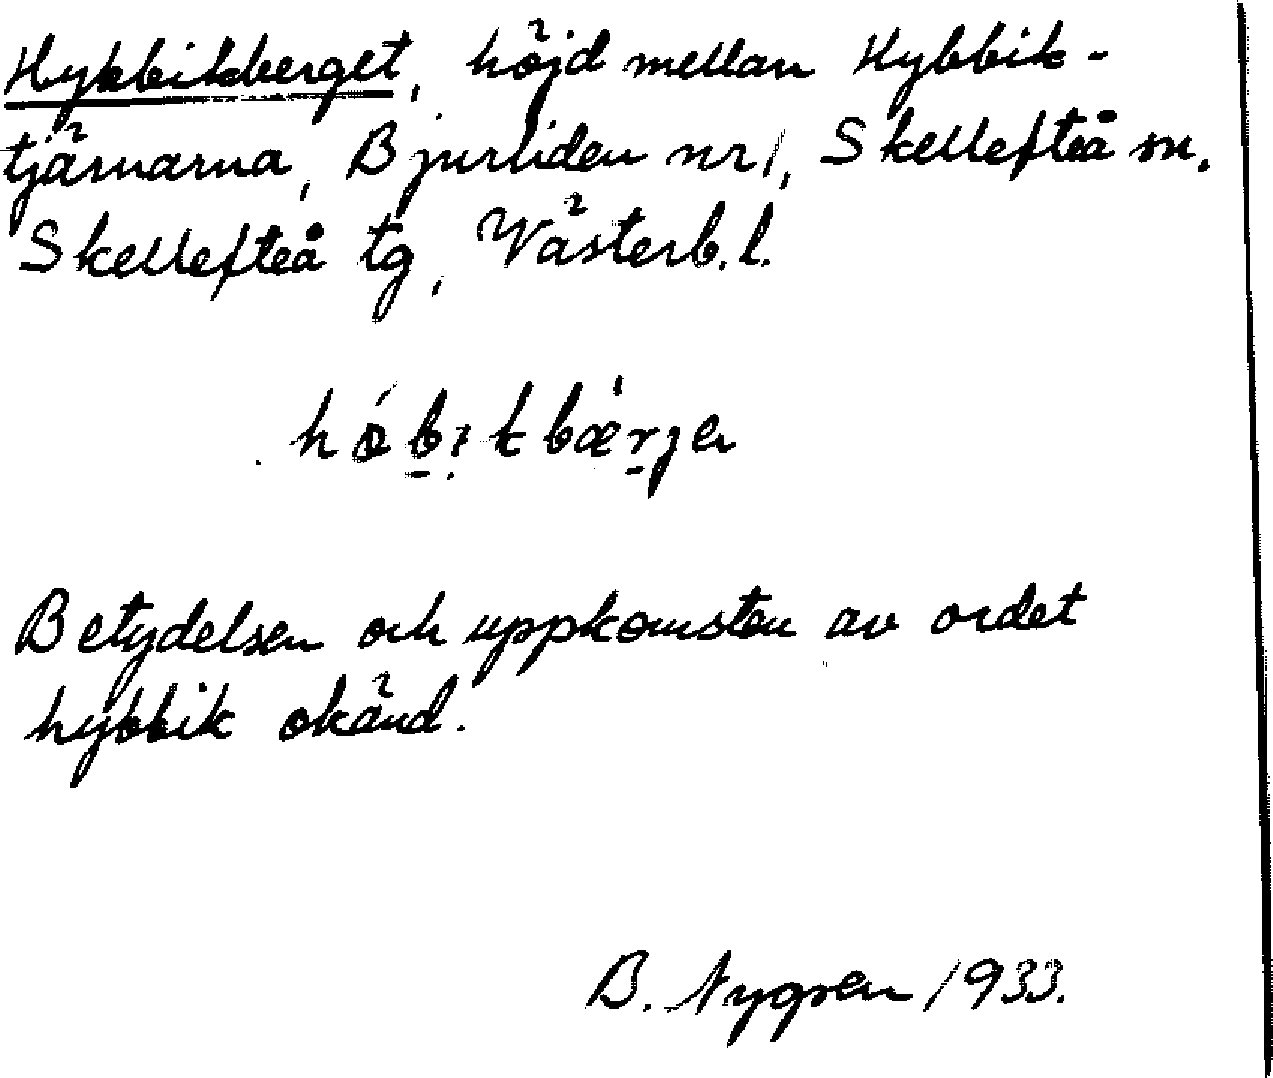 Hybbikberget, höjd mellan Hybbik-
tjärnarna, Bjurliden nr 1, Skellefteå sn.
Skellefteå tg, Västerb. l.
Betydelsen och uppkomsten av ordet
hybbik okänd.
B. Nygren 1933.